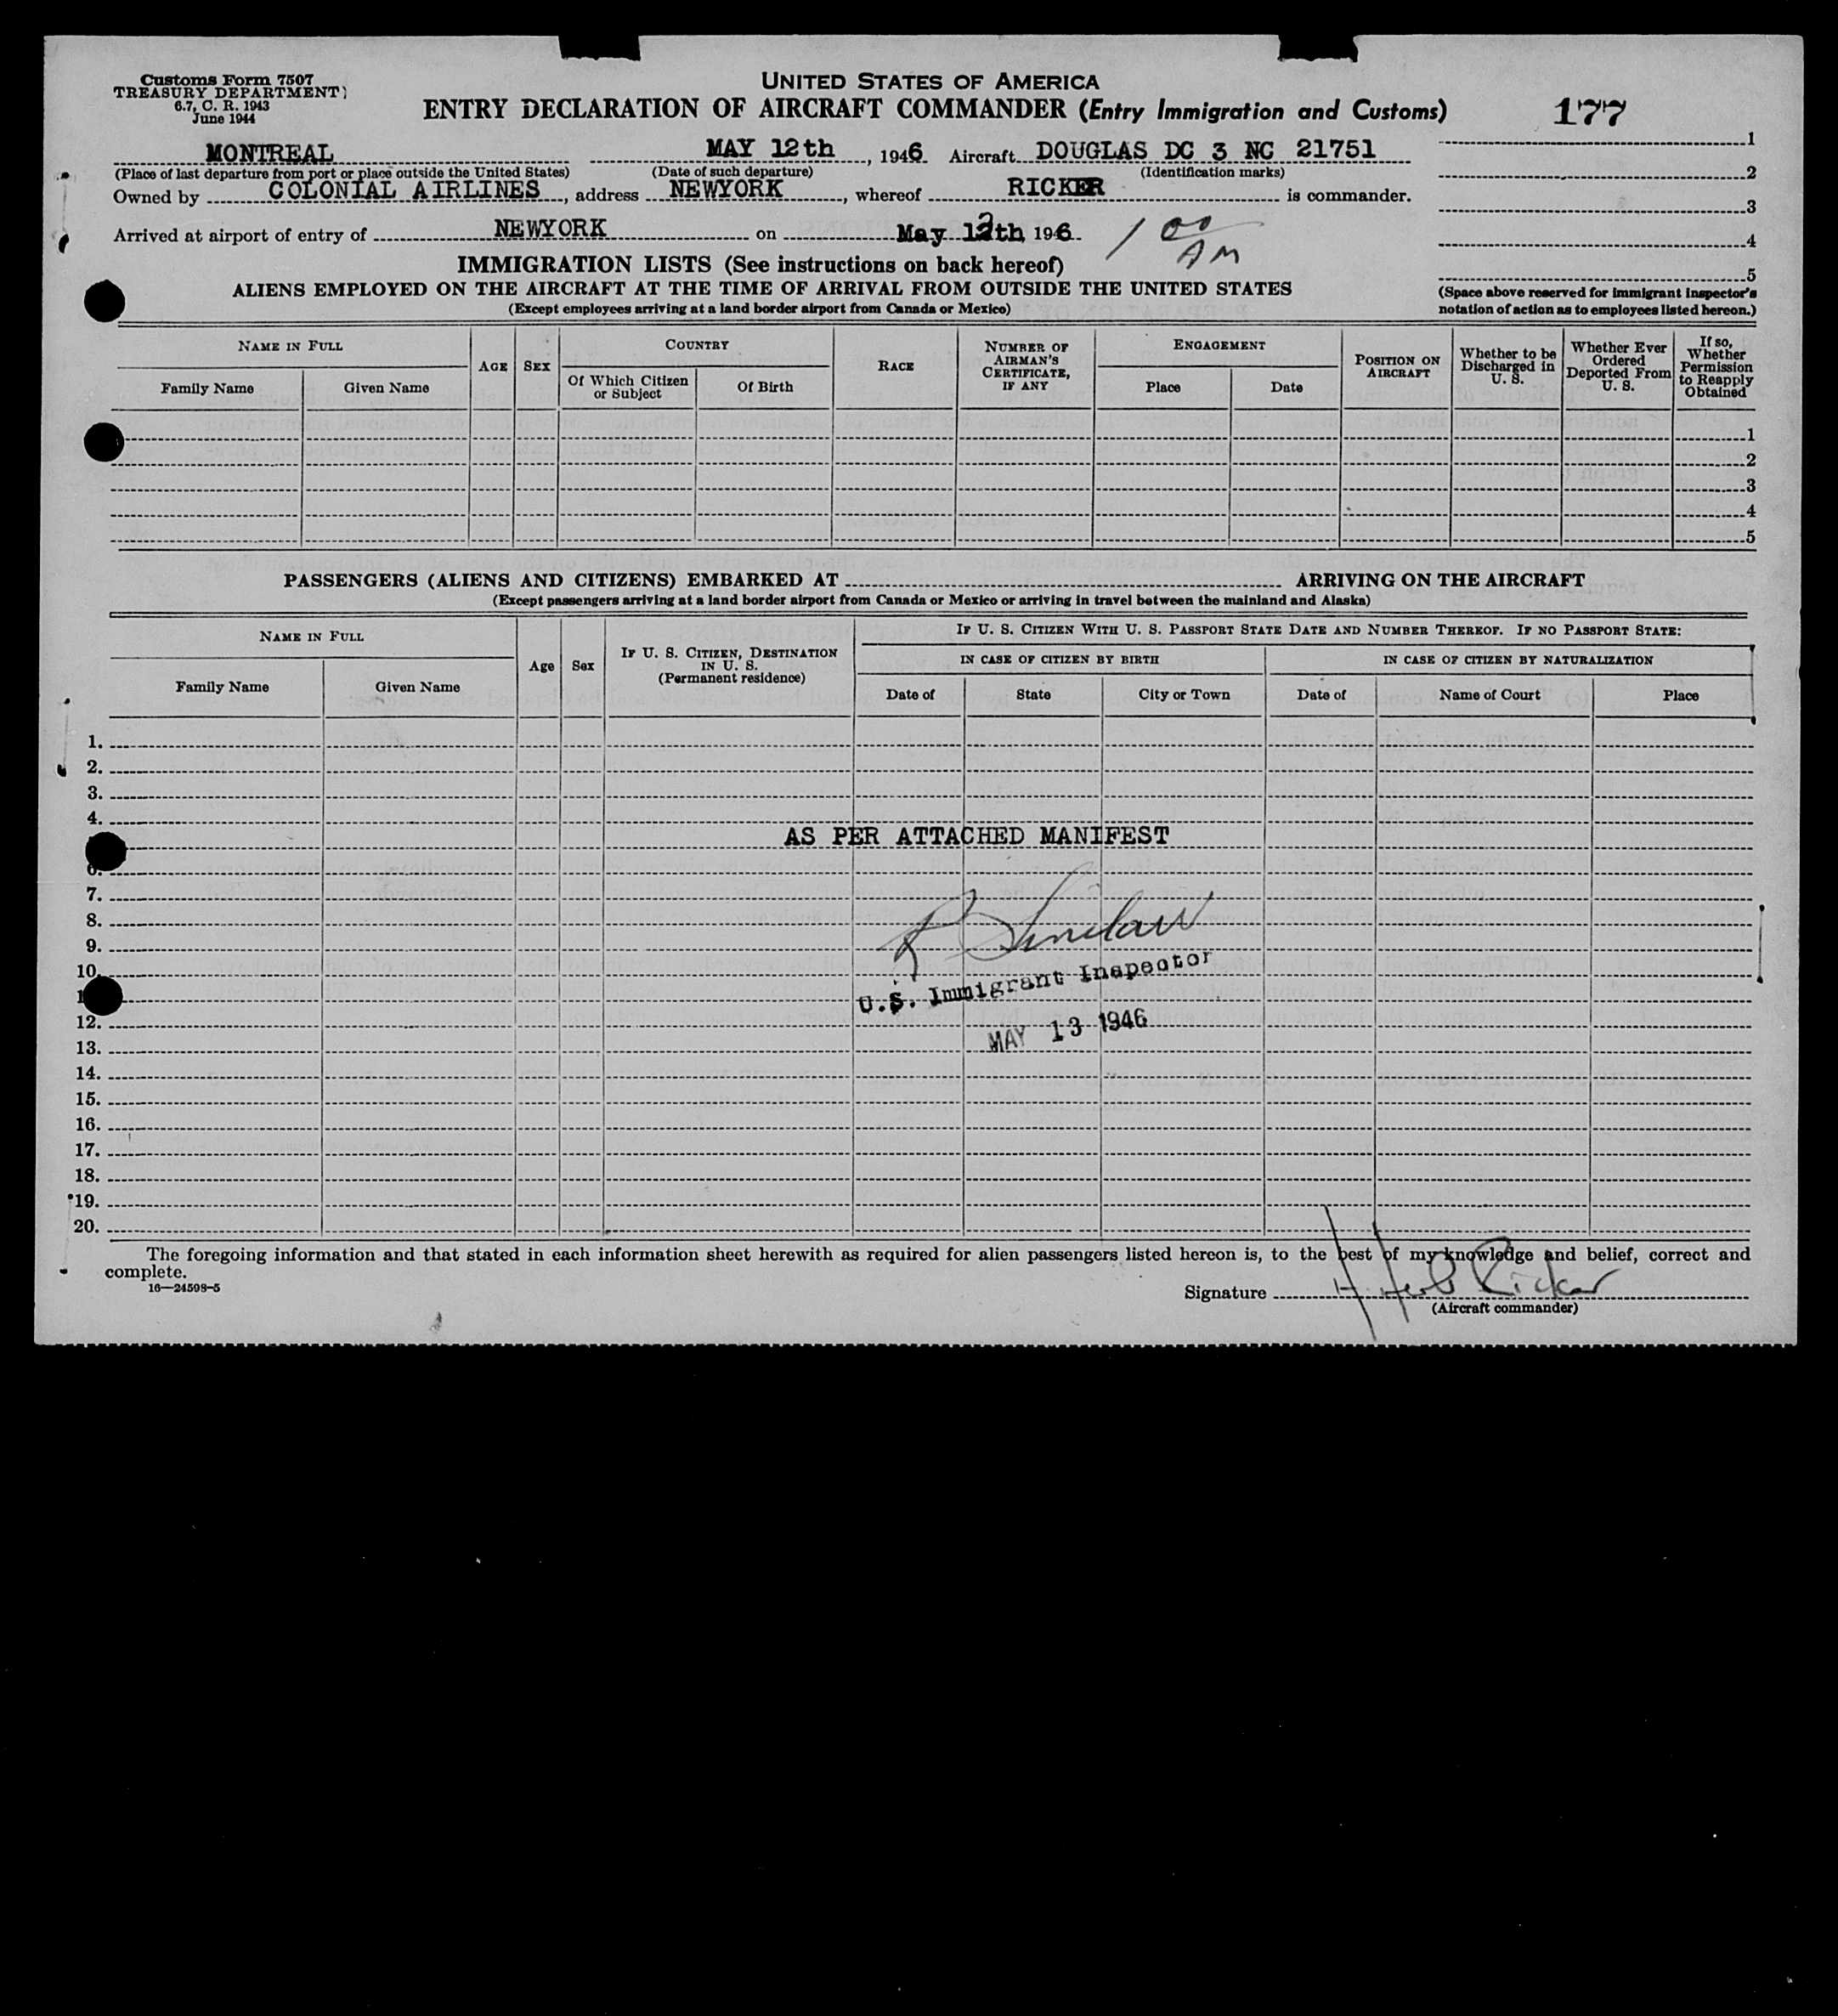 Customs Form 7507
TREASURY DEPARTMENT)
6.7, C. R. 1943
June 1944
UNITED STATES OF AMERICA
ENTRY DECLARATION OF AIRCRAFT COMMANDER (Entry Immigration and Customs)
177
MONTREAL MAY 12th, 1946 Aircraft DOUGLAS DC 3 NC 21751
(Place of last departure from port or place outside the United States) (Date of such departure) (Identification marks)
Owned by COLONIAL AIRLINES, address NEWYORK, whereof RICKER is commander.
Arrived at airport of entry of NEWYORK on May 13th, 1946. 1 00 AM
IMMIGRATION LISTS (See instructions on back hereof)
ALIENS EMPLOYED ON THE AIRCRAFT AT THE TIME OF ARRIVAL FROM OUTSIDE THE UNITED STATES
(Except employees arriving at a land border airport from Canada or Mexico)
1
2
3
4
5
(Space above reserved for immigrant inspector's
notation of action as to employees listed hereon.)
NAME IN FULL
Family Name
Given Name
AGE
SEX
COUNTRY
Of Which Citizen
or Subject
Of Birth
RACE
NUMBER OF
AIRMAN'S
CERTIFICATE,
IF ANY
ENGAGEMENT
Place
Date
POSITION ON
AIRCRAFT
Whether to be
Discharged in
U. S.
Whether Ever
Ordered
Deported From
U. S.
If so,
Whether
Permission
to Reapply
Obtained
1
2
3
4
5
PASSENGERS (ALIENS AND CITIZENS) EMBARKED AT ARRIVING ON THE AIRCRAFT
(Except passengers arriving at a land border airport from Canada or Mexico or arriving in travel between the mainland and Alaska)
NAME IN FULL
Family Name
Given Name
Age
Sex
IF U. S. CITIZEN, DESTINATION
IN U. S.
(Permanent residence)
IF U. S. CITIZEN WITH U. S. PASSPORT STATE DATE AND NUMBER THEREOF. IF NO PASSPORT STATE:
IN CASE OF CITIZEN BY BIRTH
IN CASE OF CITIZEN BY NATURALIZATION
Date of
State
City or Town
Date of
Name of Court
Place
1.
2.
3.
4.
AS PER ATTACHED MANIFEST
6.
7.
8.
R Sinclair
9.
10.
U.S. Immigrant Inspector
12.
MAY 13 1946
13.
14.
15.
16.
17.
18.
19.
20.
The foregoing information and that stated in each information sheet herewith as required for alien passengers listed hereon is, to the best of my knowledge and belief, correct and
complete.
16—24598-5
Signature H. Herb Ricker
(Aircraft commander)